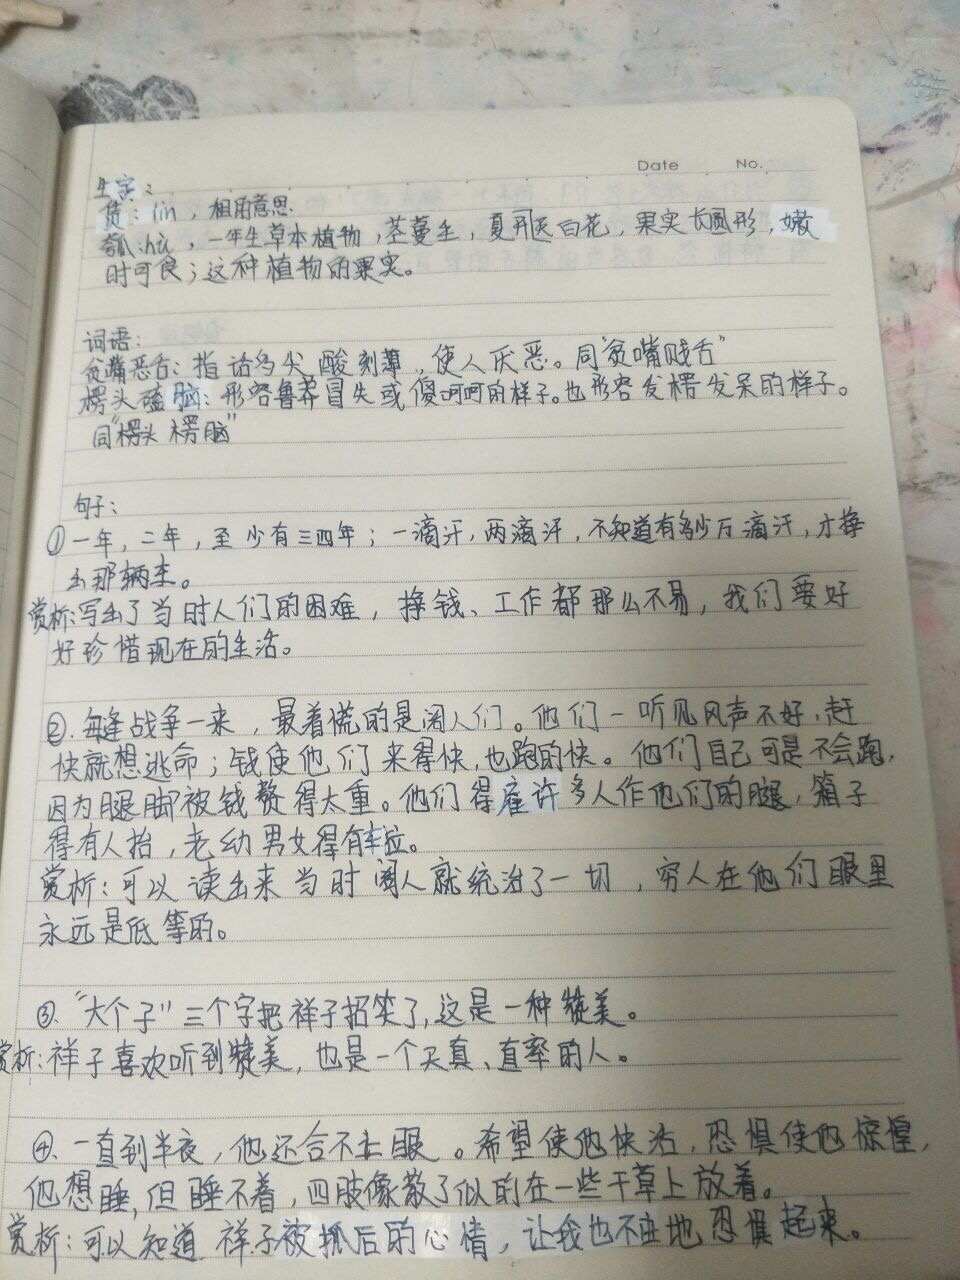 Date No.
生字：
赁：lìn，租用意思
瓠：hù，一年生草本植物，茎蔓生，夏开白花，果实长圆形，嫩
时可食；这种植物的果实。
词语：
贫嘴恶舌：指话多尖酸刻薄，使人厌恶。同"贫嘴贱舌"
楞头磕脑：形容鲁莽冒失或傻呵呵的样子。也形容发楞发呆的样子。
同"楞头楞脑"
句子：
①一年，二年，至少有三四年；一滴汗，两滴汗，不知道有多少万滴汗，才挣
出那辆车。
赏析：写出了当时人们的困难，挣钱、工作都那么不易，我们要好
好珍惜现在的生活。
②．每逢战争一来，最着慌的是阔人们。他们一听见风声不好，赶
快就想逃命；钱使他们来得快，也跑的快。他们自己可是不会跑，
因为腿脚被钱赘得太重。他们得雇许多人作他们的腿，箱子
得有人抬，老幼男女得有车拉。
赏析：可以读出来当时阔人就统治了一切，穷人在他们眼里
永远是低等的。
③、"大个子"三个字把祥子招笑了，这是一种赞美。
赏析：祥子喜欢听到赞美，也是一个天真、直率的人。
④、一直到半夜，他还合不上眼。希望使他快活，恐惧使他惊惶，
他想睡，但睡不着，四肢像散了似的在一些干草上放着。
赏析：可以知道祥子被抓后的心情，让我也不由地恐惧起来。